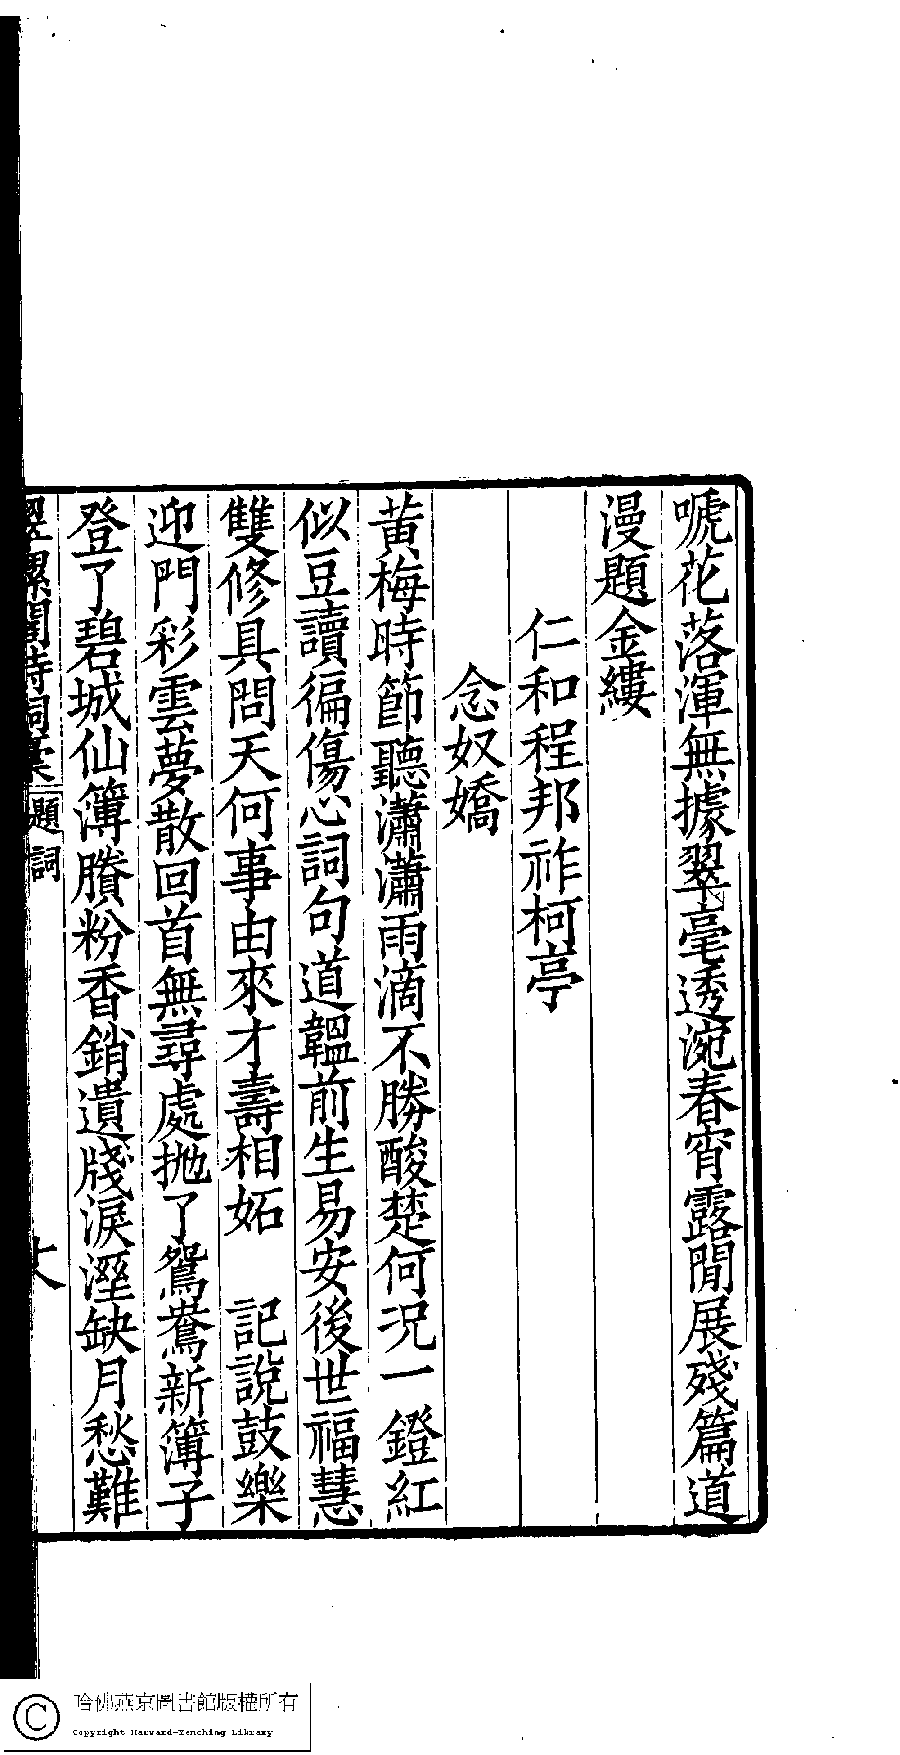 唬花落渾無據翠毫透涴春宵露閒展殘篇道
漫題金縷
仁和程邦祚柯亭
念奴嬌
黃梅時節聽瀟瀟雨滴不勝酸楚何況一鐙紅
似豆讀徧傷心詞句道韞前生易安後世福慧
雙修具問天何事由來才壽相妬　記說鼓樂
迎門彩雲夢散回首無尋處拋了鴛鴦新簿子
登了碧城仙簿賸粉香銷遺牋淚溼缺月愁難
翠螺閣詩詞稾 題詞
哈佛燕京圖書館版權所有
Copyright Harvard-Yenching Library